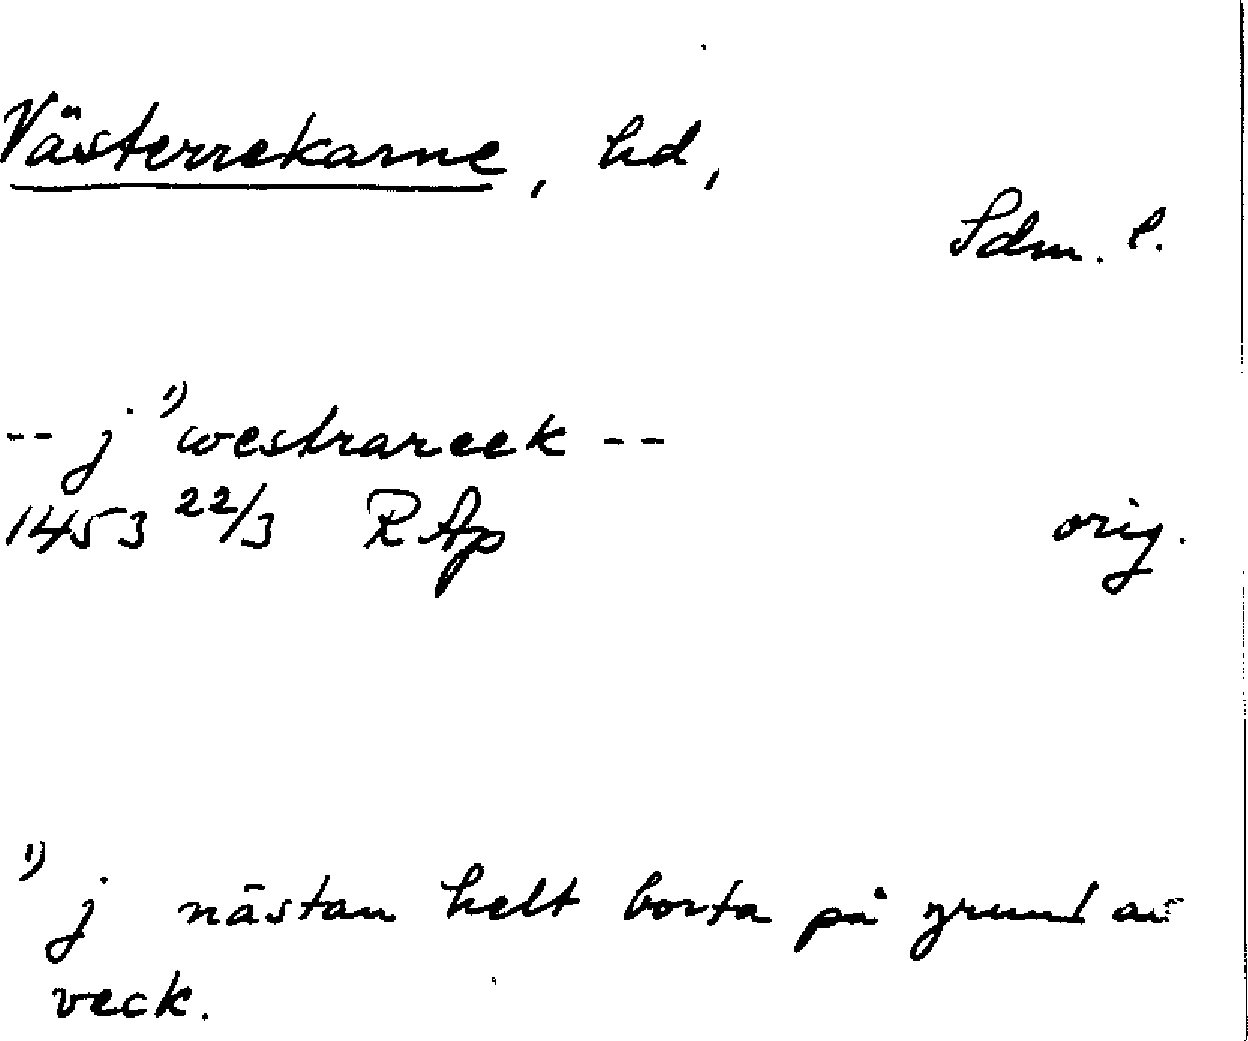 Västerrekarne, hd,
Sdm. l.
-- j ¹⁾ westrareek --
1453 22/3 RAp orig.
¹⁾ j nästan helt borta på grund av
veck.